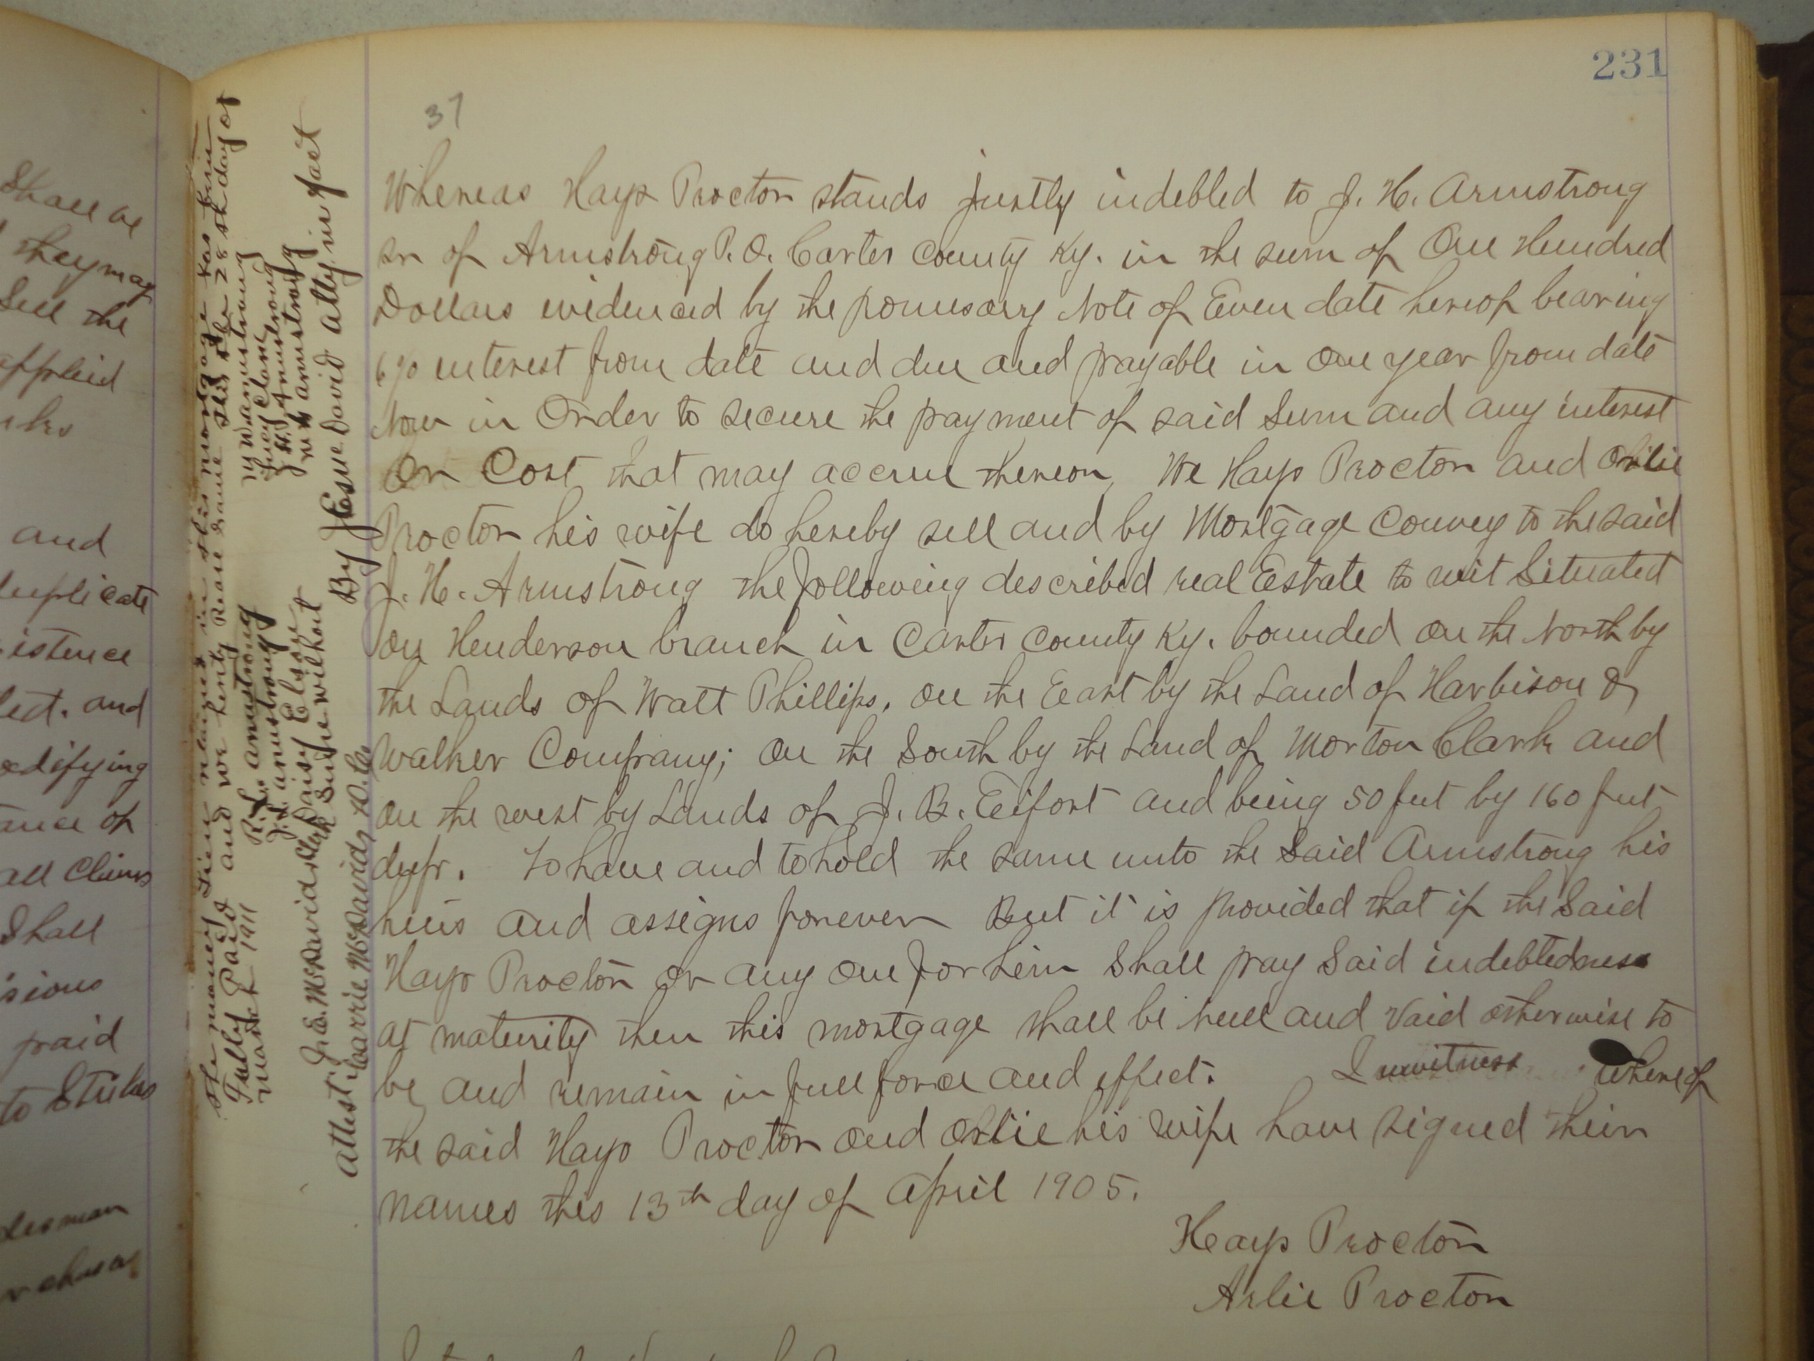 231
37
Whereas Hays Procton stands justly indebted to J. H. Armstrong
sr of Armstrong P.O. Carter County Ky. in the sum of One Hundred
Dollars evidenced by the promisory Note of Even date hereof bearing
6% interest from date and due and payable in one year from date
Now in Order to secure the payment of said Sum and any interest
Or Cost that may accrue thereon, We Hays Procton and Orlie
Procton his wife do hereby sell and by Mortgage Convey to the said
J. H. Armstrong the following described real Estate to wit Situated
on Henderson branch in Carter County Ky. bounded on the North by
the Lands of Watt Phillips, on the East by the Land of Harbison &
Walker Company; on the South by the Land of Morton Clark and
on the west by Lands of J. B. Eifort and being 50 feet by 160 feet
deep. To have and to hold the same unto the Said Armstrong his
heirs and assigns forever But it is provided that if the Said
Hays Procton or any one for him Shall pay Said indebtedness
at maturity then this mortgage shall be null and Void otherwise to
be and remain in full force and effect. In witness whereof
the said Hays Procton and Orlie his wife have signed their
names this 13th day of April 1905.
Hays Procton
Arlie Procton
The money Lien retained in this mortgage has been
Fully Paid and we hereby Release same this the 28th day of
March 1911
R. L. Armstrong
J. L. Armstrong
Daisy Elson
M Armstrong
Lucy Clark
J H Armstrong
By Jesse David atty in fact
attest: J. E. McDavid Clerk
Carrie McDavid, D.C.
shall be
they may
Sell the
applied
and
duplicate
istence
lect. and
odifying
ance of
all Claims
Shall
isions
paid
to Stiles